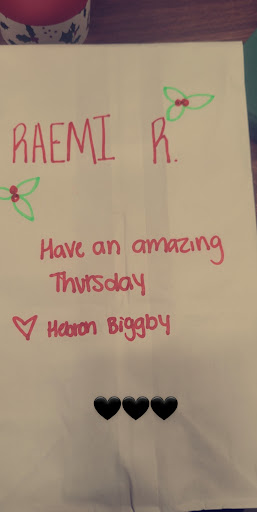 RAEMI R.
Have an amazing
Thursday
♡ Hebron Biggby
🖤🖤🖤